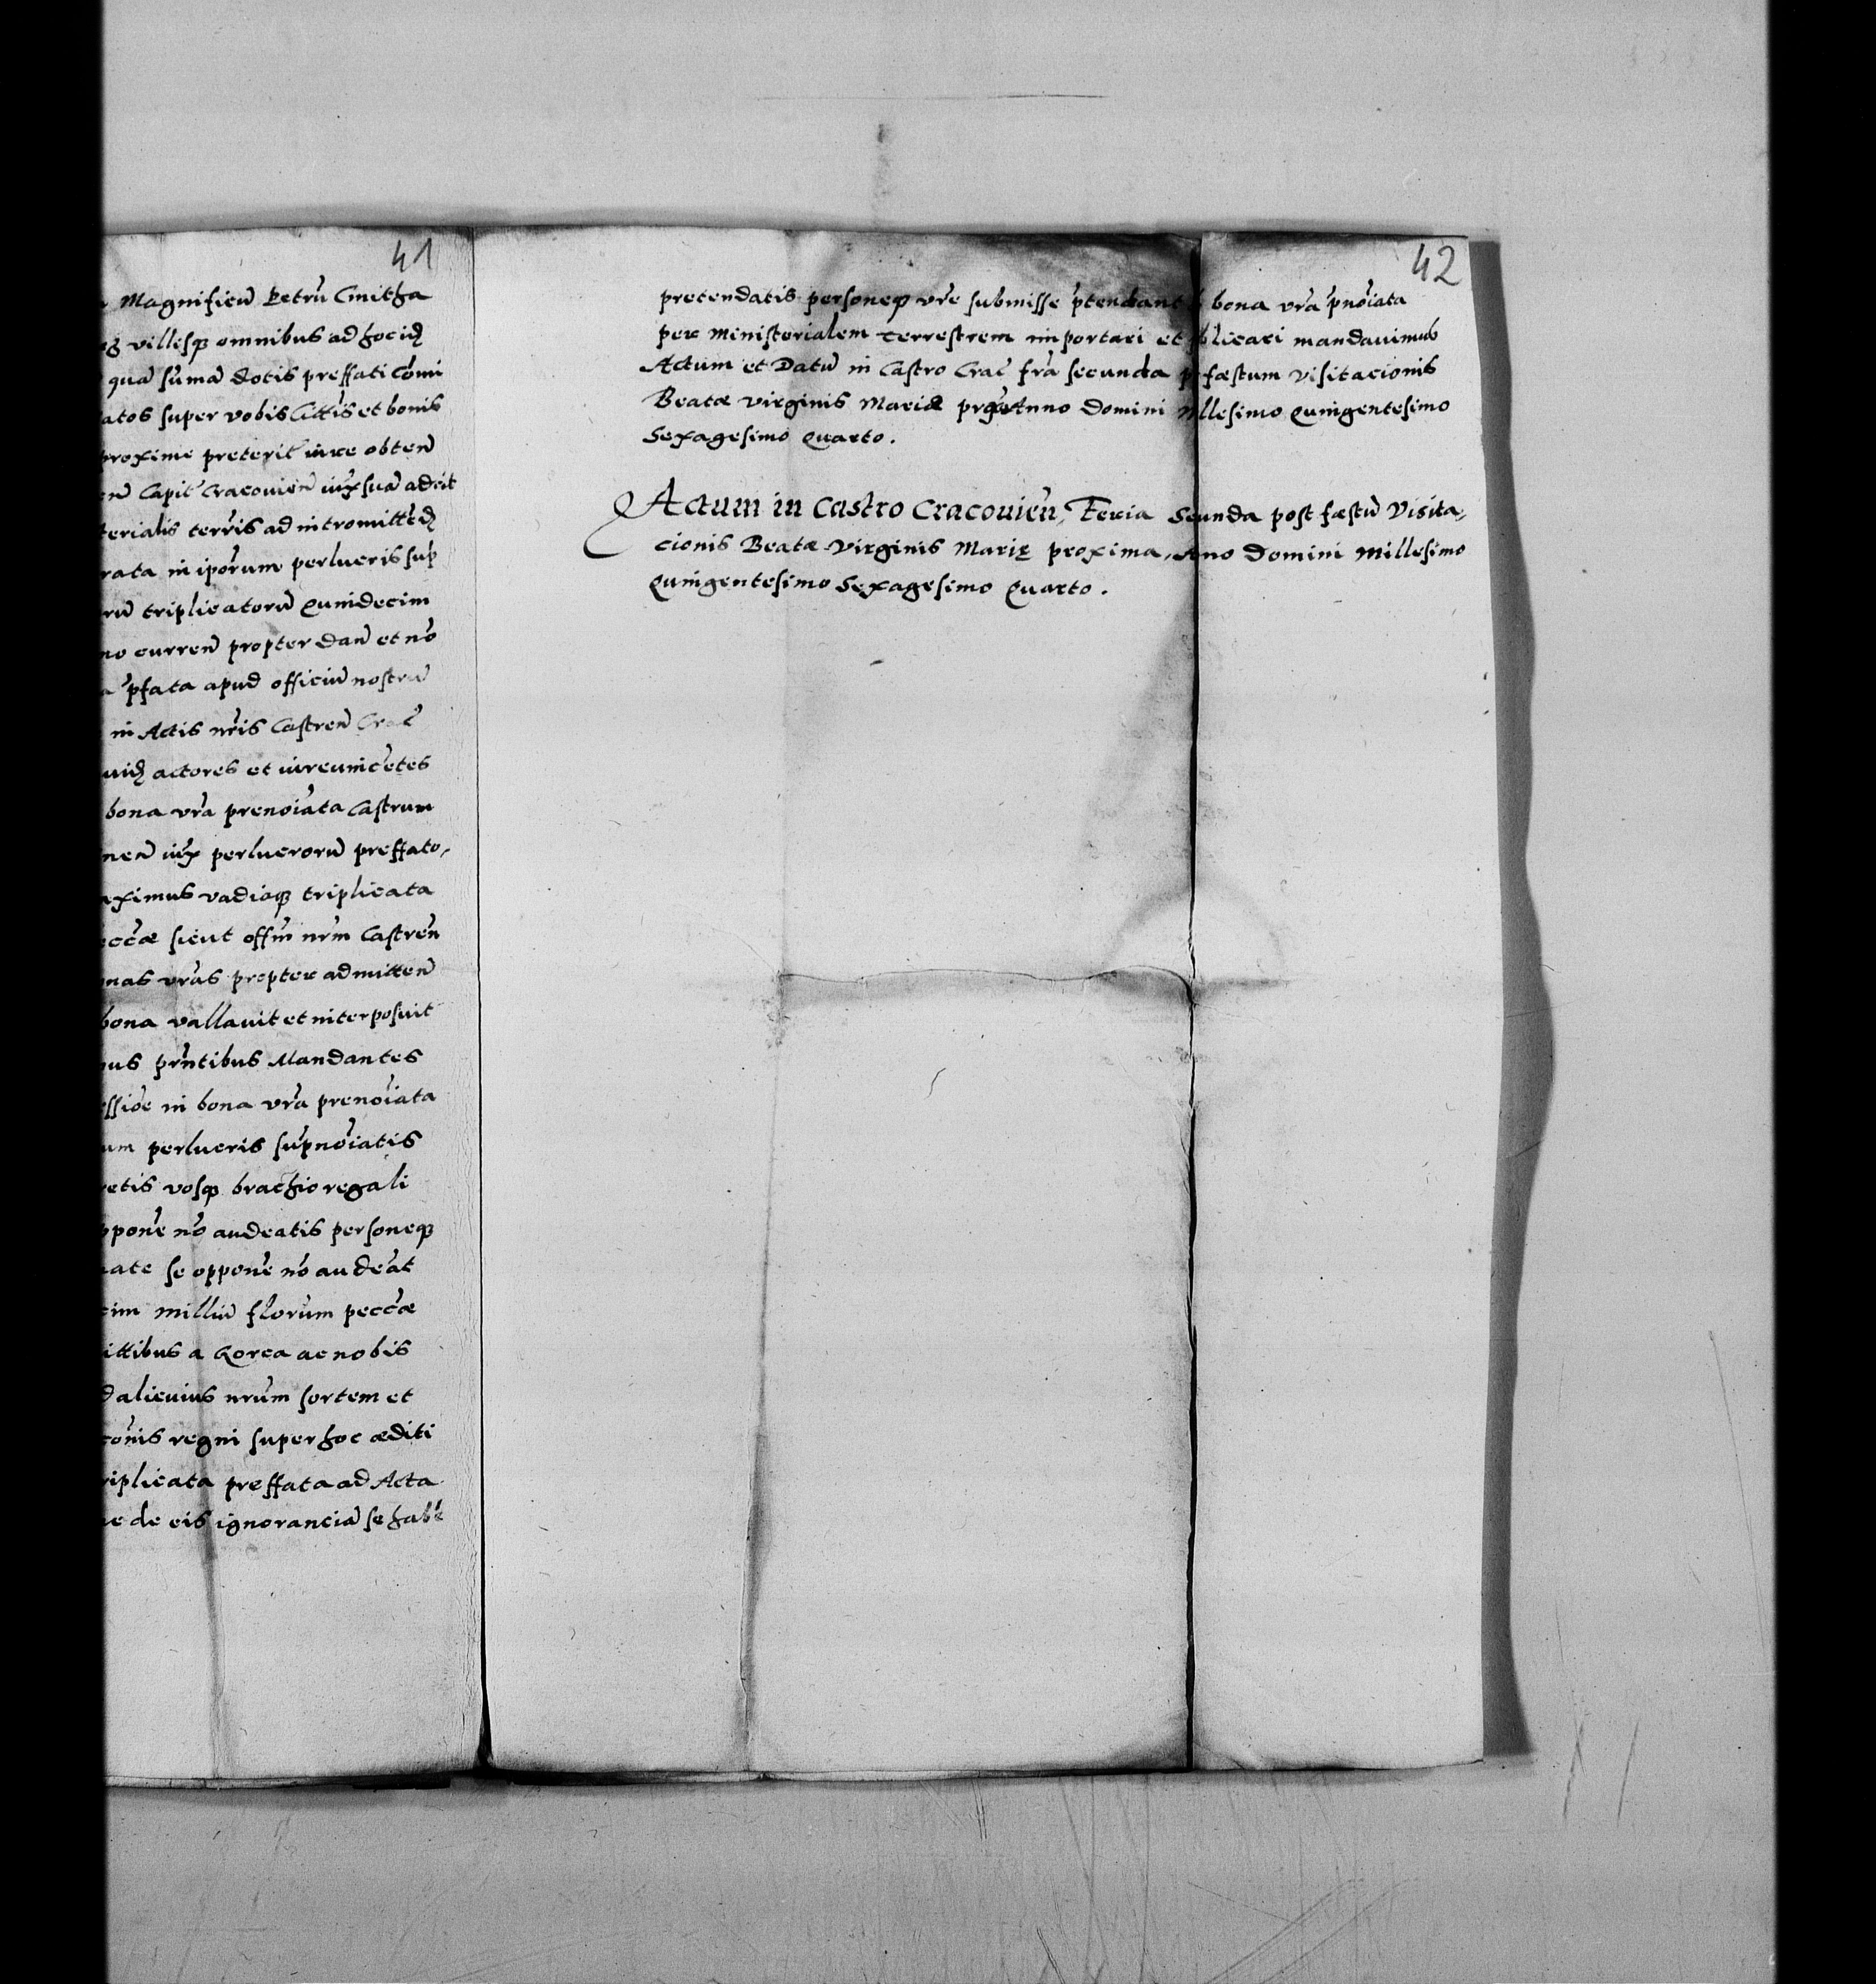 41
Magnificũ Petrũ Cmitha
villesq3 omnibus ad hociđ
quã sũmã dotis preffati Comi
atos super vobis Cittis et bonis
proxime preterit iure obteñ
Capit Cracovieñ iux suã adcit
terialis terris ad intromitteđ
rata in ipõrum perlucris sup
rũ triplicatorũ Quindecim
no curreñ propter dañ et nõ
a p̃fata apud officiũ nostrũ
in Actis nr̃is Castreñ Crac
uiđ actores et iurevincẽtes
bona vr̃a prenoĩata Castrum
neñ iux perlucrorũ preffato,
aximus vadioq3 triplicata
peccæ sicut offm̃ nrm̃ Castreñ
nas vr̃as propter admitteñ
bona vallavit et interposuit
us prñtibus Mandantes
essiõe in bona vr̃a prenoĩata
um perlucris sup̃noĩatis
etis vosq3 brachio regali
ppone nõ audeatis personeq3
ate se oppone nõ audeãt
cim milliũ florum peccæ
ittibus a Korca ac nobis
d alicuius nrũm sortem et
cõnis regni super hoc æditi
riplicata preffata ad Acta
ne de eis ignoranciã se habe
42
pretendatis personeq3 vr̃e submisse p̃tendant bona vr̃a p̃noĩata
per ministerialem terrestrem importari et blicari mandavimus
Actum et Datũ in Castro Crac fr̃a secunda p fæstum Visitacionis
Beatæ Virginis Mariæ Anno Domini Millesimo Quingentesimo
Sexagesimo Quarto.
Actum in Castro Cracovieñ, Feria Secunda post fæstũ Visita,
cionis Beatæ Virginis Marię proxima, Anno Domini Millesimo
Quingentesimo Sexagesimo Quarto.